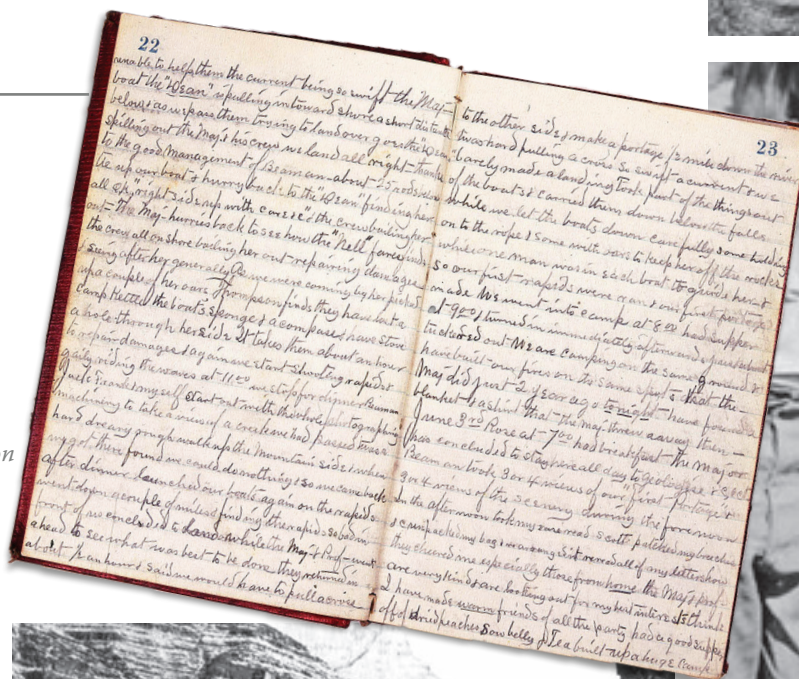 22
unable to help them the current being so swift the Maj-
boat the "Dean" is pulling in toward shore a short distance
below & as we pass them trying to land over goes the "Dean"
spilling out the Maj. & his crew we land all right - thanks
to the good management of Beaman - about 25 rods below
tie up our boat & hurry back to the "Dean" finding her
all ok, "right side up with care" & the crew bailing her
out - The Maj - hurries back to see how the "Nell" fares finds
the crew all on shore bailing her out - repairing damages
& seeing after her generally As we were coming by her picked
up a couple of her oars. Thompson finds they have lost a
camp kettle the boat's sponge & a compass & have stove
a hole through her side It takes them about an hour
to repair damages & again we start shooting rapids &
gaily riding the waves at 11.00 we stop for dinner Beaman
Jack & myself start out with the whole photographing
machinery to take a view of a creek we had passed was a
hard dreary prough walk up the Mountain side & when
we got there found we could do nothing & so we came back
after dinner launched our boats again on the rapids
went down a couple of miles & find my the rapids so bad in
front of us concluded to land while the Maj & Prof went
ahead to see what was best to be done they returned in
about ½ an hour & said we would have to pull across
23
to the other side & make a portage ½ mile down the river
twas hard pulling across so swift a current & we
barely made a landing took part of the things out
of the boats & carried them down below the falls
while we let the boats down carefully some holding
on to the rope & some with oars to keep her off the rocks
while one man was in each boat to guide her &
so our first rapids were run & our first portage
made We went into camp at 8.00 had supper
at 9.00 & turned in immediately afterwards quite
tuckered out We are camping on the same ground &
have built our fires on the same spot that the
Maj did just 2 years ago tonight - have found a
blanket & a shirt that the Maj threw away then -
June 3rd Rose at 7.00 had breakfast - The Major
has concluded to stay here all day to geologise &
Beaman took 3 or 4 views of our first portage &
3 or 4 views of the scenery during the forenoon
In the afternoon took my read Scott patched my breeches
& unpacked my bag & read all of my letters how
they cheered me especially those from home the Maj & Prof.
are very kind & are looking out for my best interests think
I have made warm friends of all the party had a good supper
off of dried peaches Sow belly & Tea built up a huge Camp
on